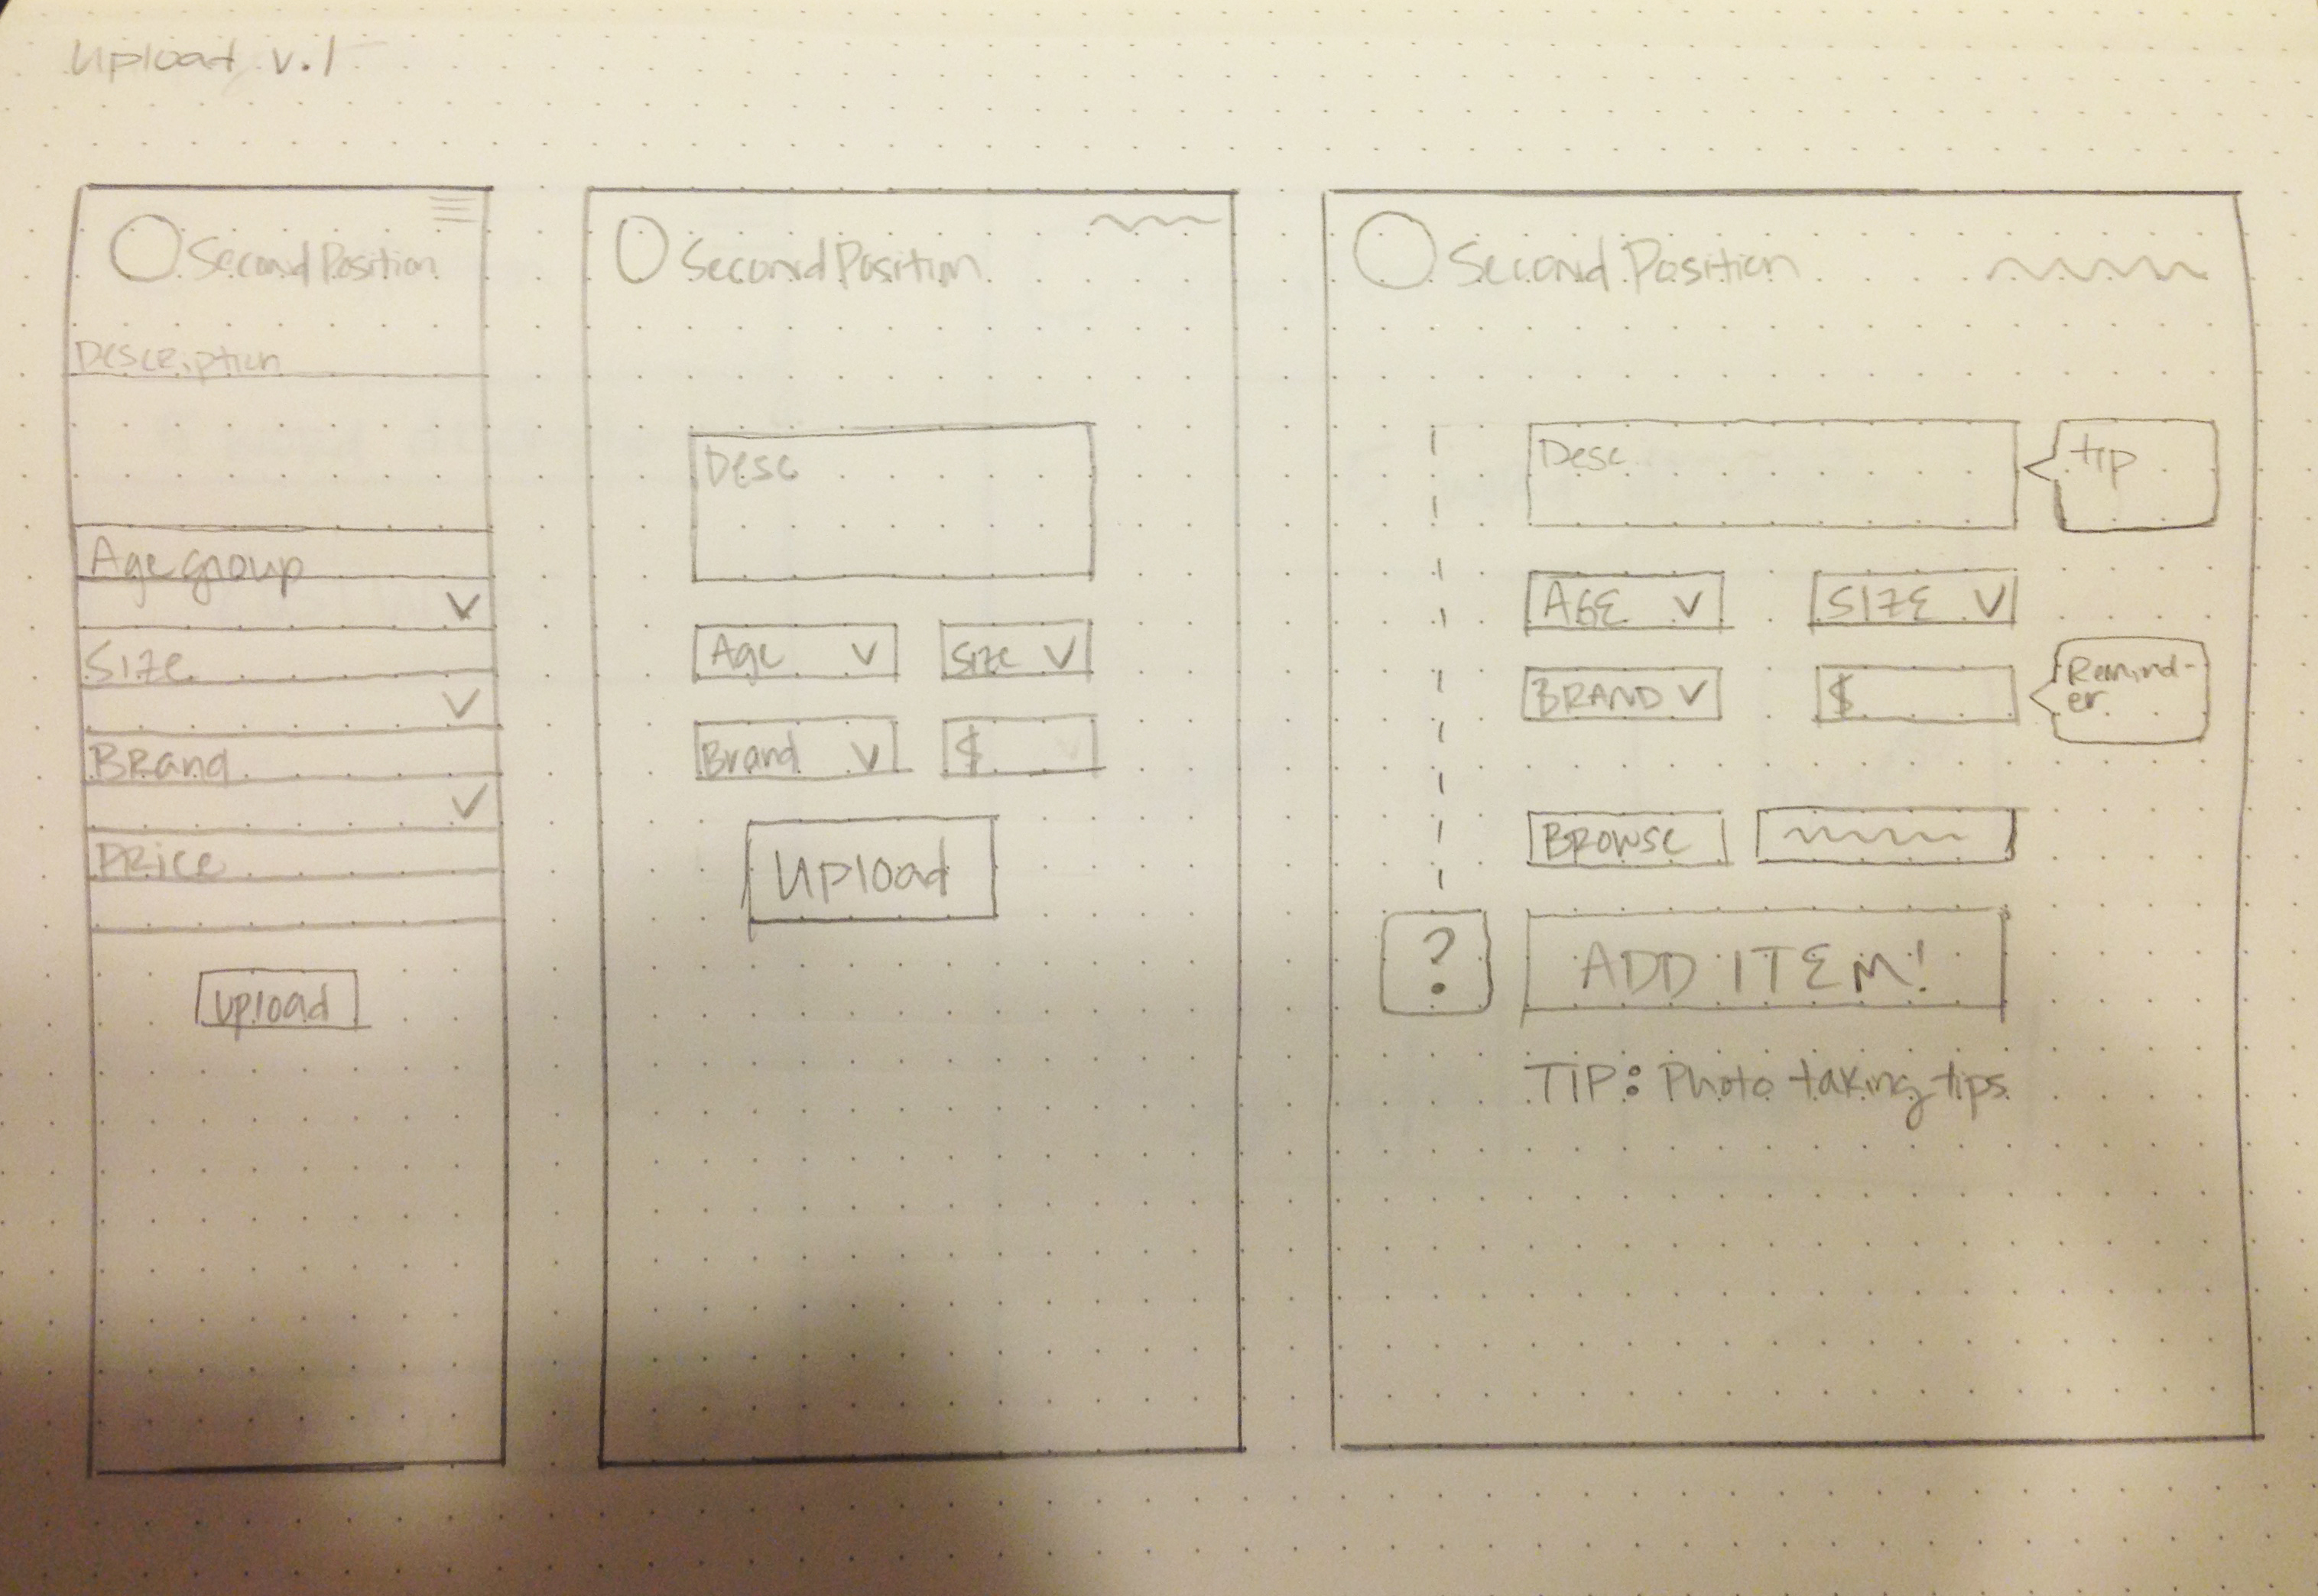 Upload v.1
Second Position
Description
Age group
Size
Brand
Price
upload
Second Position
Desc
Age
Size
Brand
$
Upload
Second Position
Desc
tip
AGE
SIZE
BRAND
$
Remind-
er
BROWSE
?
ADD ITEM!
TIP: Photo taking tips